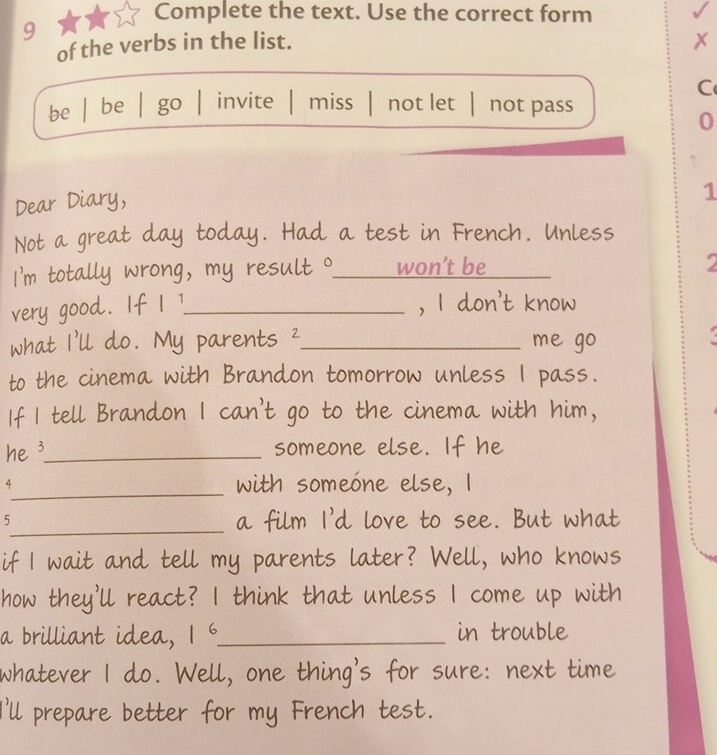 9 ★★☆ Complete the text. Use the correct form
of the verbs in the list.
be | be | go | invite | miss | not let | not pass
Dear Diary,
Not a great day today. Had a test in French. Unless
I'm totally wrong, my result 0 won't be
very good. If I 1____________, I don't know
what I'll do. My parents 2____________ me go
to the cinema with Brandon tomorrow unless I pass.
If I tell Brandon I can't go to the cinema with him,
he 3____________ someone else. If he
4____________ with someone else, I
5____________ a film I'd love to see. But what
if I wait and tell my parents later? Well, who knows
how they'll react? I think that unless I come up with
a brilliant idea, I 6____________ in trouble
whatever I do. Well, one thing's for sure: next time
I'll prepare better for my French test.
✓
✗
0
1
2